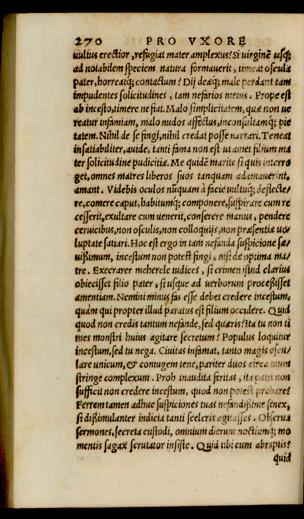 270 PRO VXORE
uultus erectior, refugiat mater amplexus? Si uirginẽ usq;
ad notabilem speciem natura formauerit, timeat oscula
pater, horreatq; contactum? Dij deæq; male perdant tam
impudentes solicitudines, tam nefarios metus. Prope est
ab incesto, timere ne fiat. Malo simplicitatem, quæ non ue
reatur infamiam, malo nudos affectus, inconsultamq; pie
tatem. Nihil de se fingi, nihil credat posse narrari. Teneat
insatiabiliter, auide, tanti fama non est ut amet filium ma
ter solicitudine pudicitiæ. Me quidẽ marite si quis interro
get, omnes matres liberos suos tanquam adamauerint,
amant. Videbis oculos nũquam à facie uultuq; deflecte/
re, comere caput, habitumq; componere, suspirare cum re
cesserit, exultare cum uenerit, conserere manus, pendere
ceruicibus, non osculis, non colloquijs, non præsentiæ uo
luptate satiari. Hoc est ergo in tam nefanda suspicione sæ/
uissimum, incestum non potest fingi, nisi de optima ma/
tre. Execrarer mehercle iudices, si crimen istud clarius
obiecisset filio pater, si usque ad uerborum processisset
amentiam. Nemini minus fas esse debet credere incestum,
quàm qui propter illud paratus est filium occidere. Quid
quod non credis tantum nefande, sed quæris? ita tu non ti
mes monstri huius agitare secretum? Populus loquitur
incestum, sed tu nega. Ciuitas infamat, tanto magis oscu/
lare unicum, & coniugem tene, pariter duos circa unum
stringe complexum. Proh inaudita feritas, ita patri non
sufficit non credere incestum, quod non potest probare?
Ferrem tamen adhuc suspiciones tuas nefandissime senex,
si dißimulanter indicia tanti sceleris agitasses. Obserua
sermones, secreta custodi, omnium dierum noctiumq; mo
mentis sagax scrutator insiste. Quid tibi cum abruptis?
quid